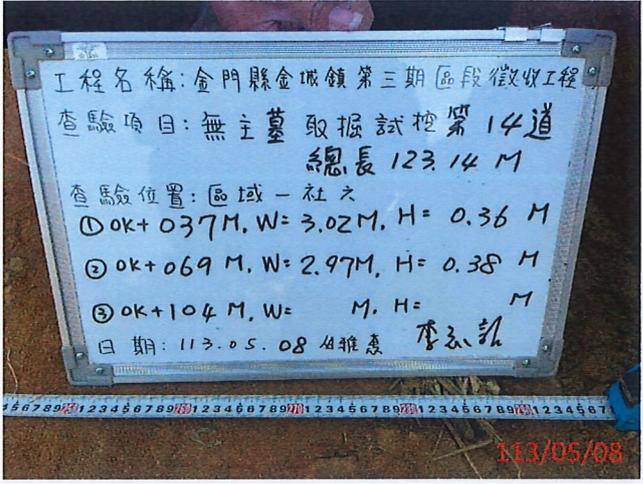 工程名稱:金門縣金城鎮第三期區段徵收工程
查驗項目:無主墓 取掘試挖第14道
總長 123.14 M
查驗位置:區域一社六
①0K+037M, W= 3.02M, H= 0.36 M
②0K+069 M, W= 2.97M, H= 0.38 M
③0K+104 M, W= M, H= M
日期:113.05.08
113/05/08